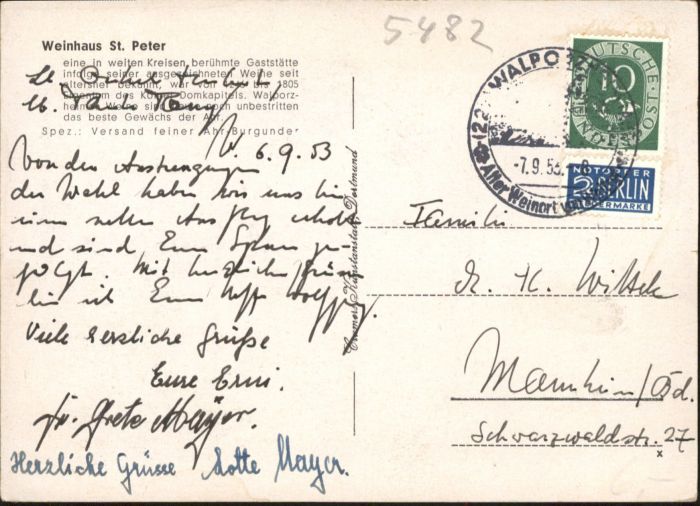 5482
Weinhaus St. Peter
eine in weiten Kreisen, berühmte Gaststätte
infolge seiner ausgezeichneten Weine seit
altersher bekannt, war von bis 1805
Eigentum des Kölner Domkapitels. Walporz-
heimer Weine sind unbestritten
das beste Gewächs der Ahr.
Spez.: Versand feiner Ahr-Burgunder
W. 6.9.53
Von den Anstrengungen
der Wahl haben wir uns bei
einem netten Ausflug erholt
und sind Euren Spuren ge-
folgt. Mit herzlichen Grüßen
bin ich Euer
Viele herzliche Grüße
Eure Erni.
Fr. Grete Mayer.
Herzliche Grüsse Lotte Mayer.
Cramers Kunstanstalt, Dortmund
DEUTSCHE POST
10
WALPORZHEIM
122
-7.9.53
Alter Weinort
NOTOPFER
2 BERLIN
STEUERMARKE
Familie
K. Wittek
Mannheim/Bd.
Schwarzwaldstr. 27
x